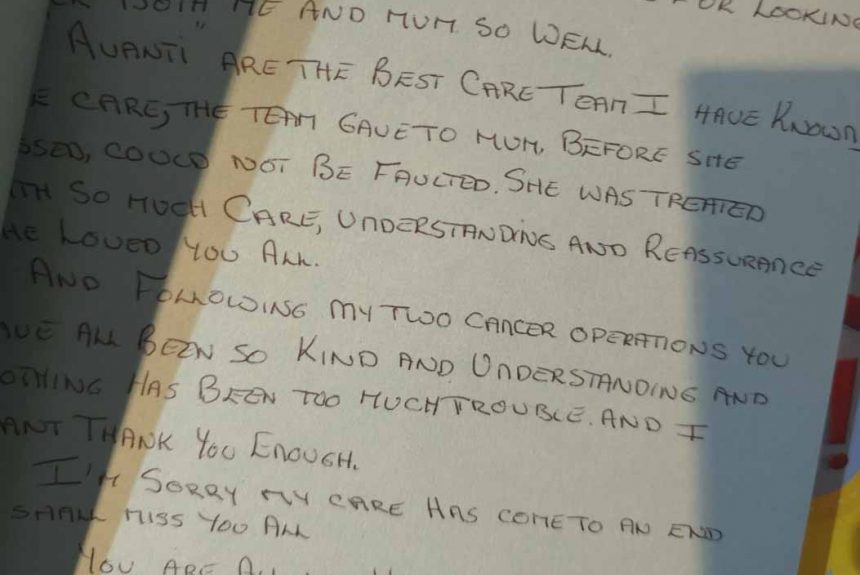 ME AND MUM SO WELL.
FOR LOOKING
AVANTI" ARE THE BEST CARE TEAM I HAVE KNOWN
CARE, THE TEAM GAVE TO MUM, BEFORE SHE
SSED, COULD NOT BE FAULTED. SHE WAS TREATED
ITH SO MUCH CARE, UNDERSTANDING AND REASSURANCE
HE LOVED YOU ALL.
AND FOLLOWING MY TWO CANCER OPERATIONS YOU
AVE ALL BEEN SO KIND AND UNDERSTANDING AND
OTHING HAS BEEN TOO MUCH TROUBLE. AND I
ANT THANK YOU ENOUGH.
I'M SORRY MY CARE HAS COME TO AN END
SHALL MISS YOU ALL
YOU ARE